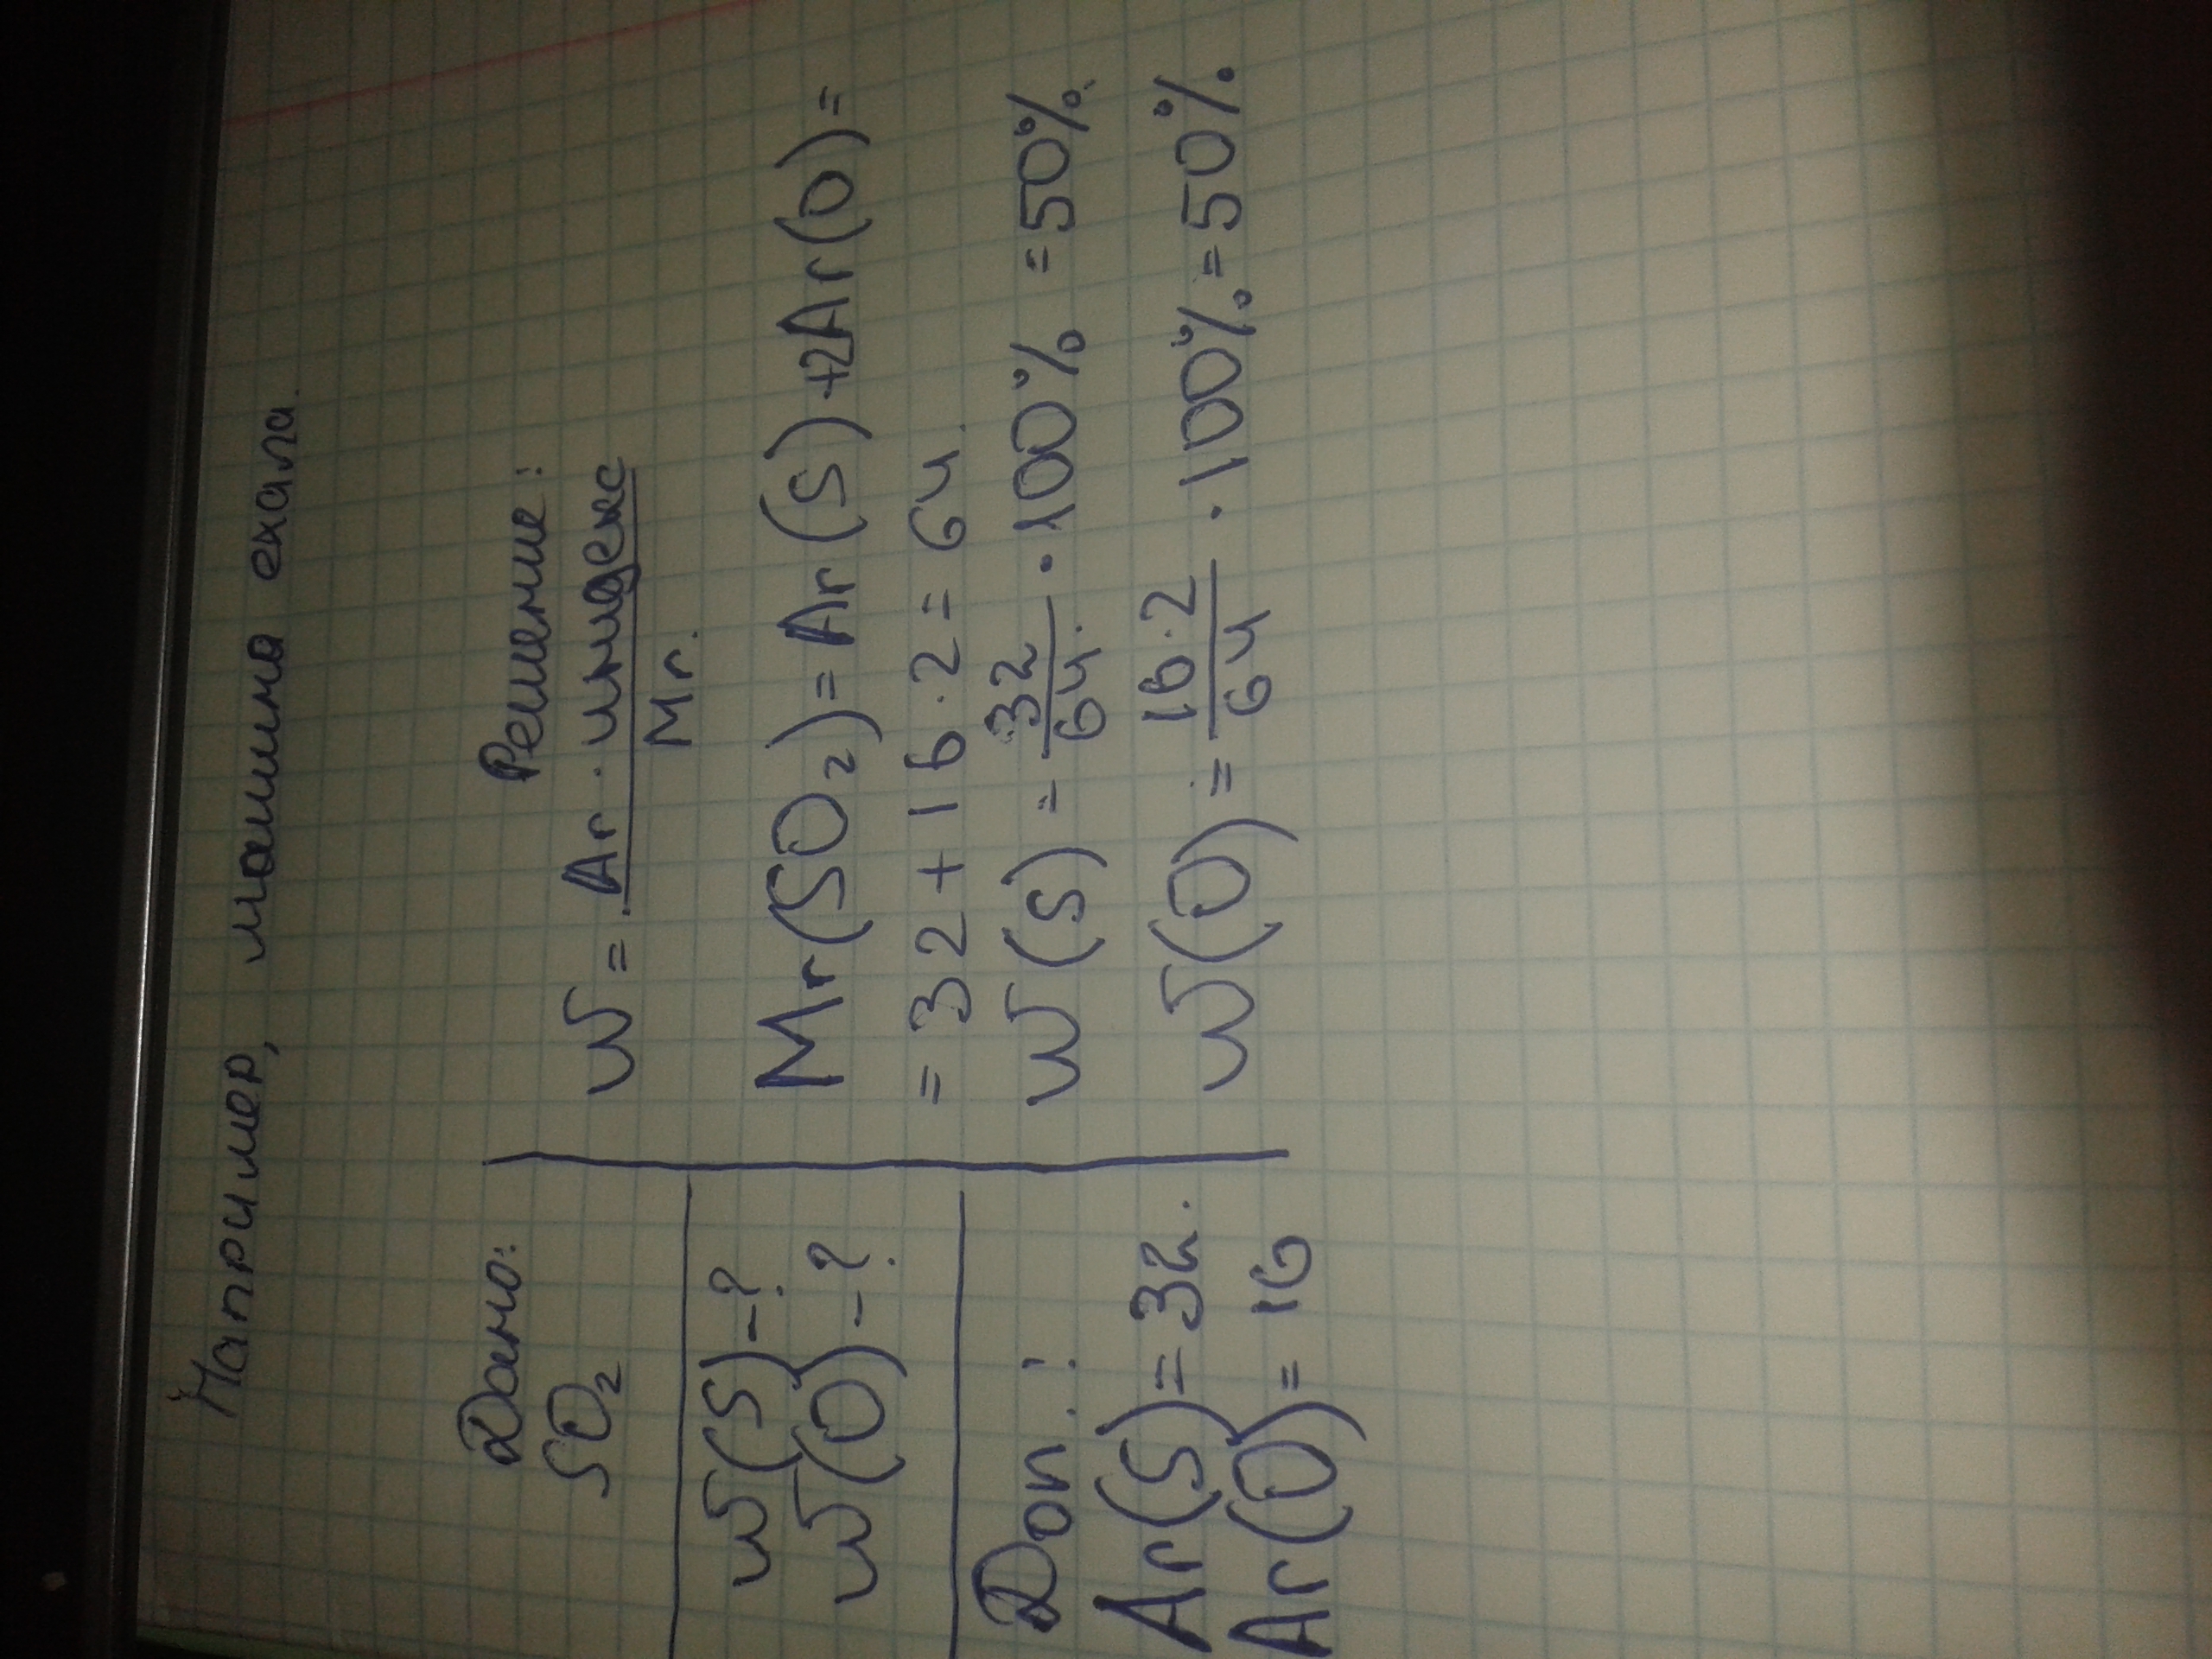 Например, машина ехала.
Дано:
SO₂
W(S)-?
W(O)-?
Доп.:
Ar(S)=32.
Ar(O)=16
Решение:
W = Ar · индекс / Mr.
Mr(SO₂)=Ar(S)+2Ar(O)=
=32+16·2=64.
W(S)=32/64·100%=50%.
W(O)=16·2/64·100%=50%.